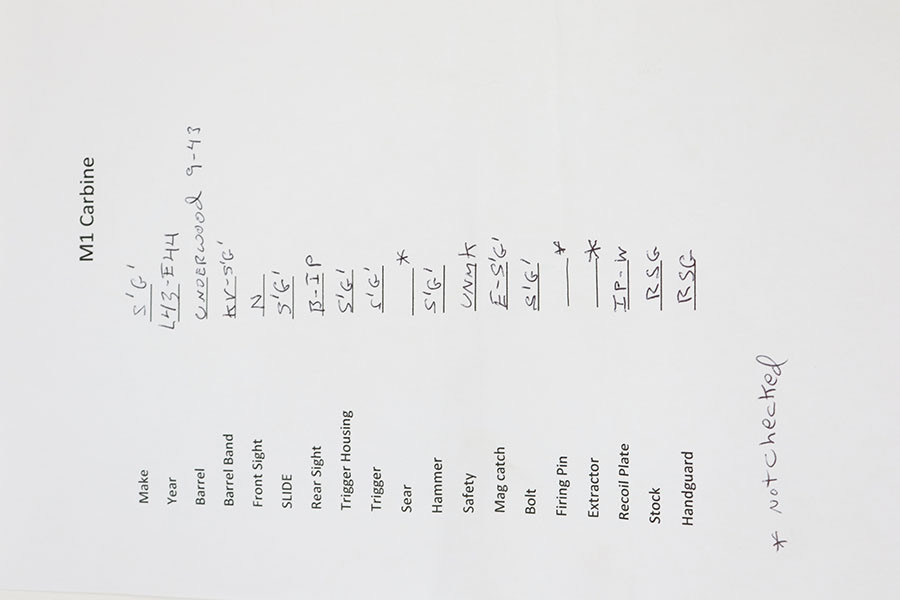 M1 Carbine
Make S'G'
Year L43-E44
Barrel UNDERWOOD 9-43
Barrel Band KV-S'G'
Front Sight N
SLIDE S'G'
Rear Sight B-IP
Trigger Housing S'G'
Trigger S'G'
Sear *
Hammer S'G'
Safety UNMK
Mag catch E-S'G'
Bolt S'G'
Firing Pin *
Extractor *
Recoil Plate IP-W
Stock RSG
Handguard RSG
* Not checked